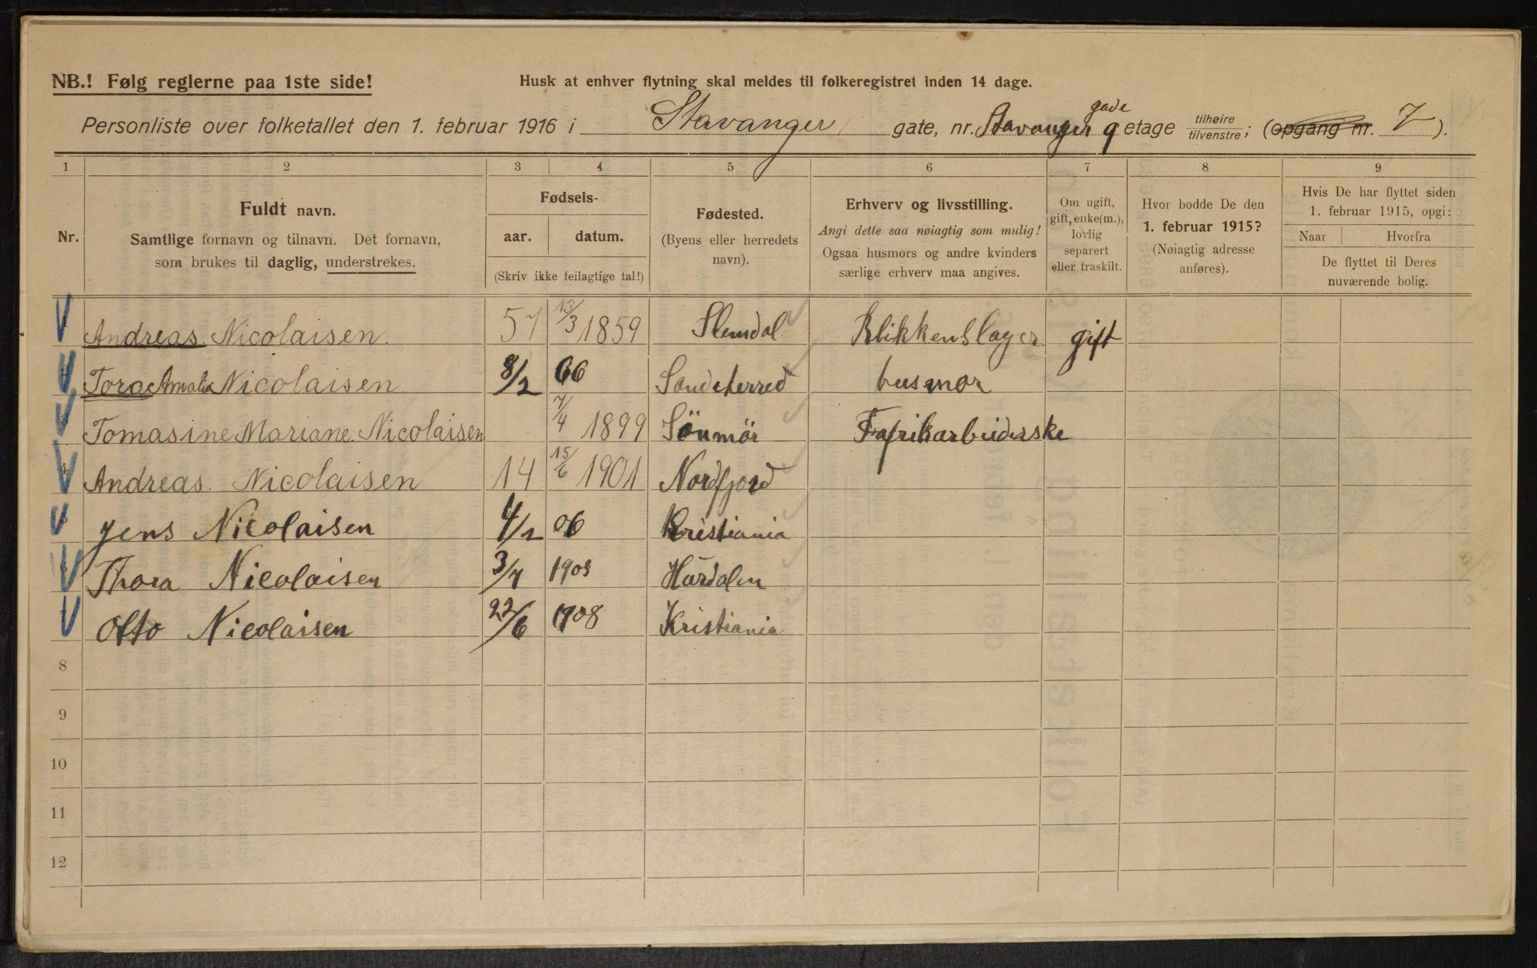 NB.! Følg reglerne paa 1ste side!
Husk at enhver flytning skal meldes til folkeregistret inden 14 dage.
Personliste over folketallet den 1. februar 1916 i Stavanger gate, nr. Stavanger gade 9 etage tilhøire tilvenstre; (opgang nr. 7).
1 2 3 4 5 6 7 8 9
Nr.
Fuldt navn.
Samtlige fornavn og tilnavn. Det fornavn,
som brukes til daglig, understrekes.
Fødsels-
aar. datum.
(Skriv ikke feilagtige tal!)
Fødested.
(Byens eller herredets
navn).
Erhverv og livsstilling.
Angi dette saa nøiagtig som mulig!
Ogsaa husmors og andre kvinders
særlige erhverv maa angives.
Om ugift,
gift, enke(m.),
lovlig
separert
eller fraskilt.
Hvor bodde De den
1. februar 1915?
(Nøiagtig adresse
anføres).
Hvis De har flyttet siden
1. februar 1915, opgi:
Naar Hvorfra
De flyttet til Deres
nuværende bolig.
Andreas Nicolaisen. 57 13/3 1859 Slemdal Blikkenslager gift
Tora Amalia Nicolaisen 8/2 66 Sandeherred husmor
Tomasine Mariane Nicolaisen 7/4 1899 Sönmör Fafrikarbeiderske
Andreas Nicolaisen 14 15/6 1901 Nordfjord
Jens Nicolaisen 4/2 06 Kristiania
Thora Nicolaisen 3/7 1903 Hardalen
Otto Nicolaisen 22/6 1908 Kristiania
8
9
10
11
12